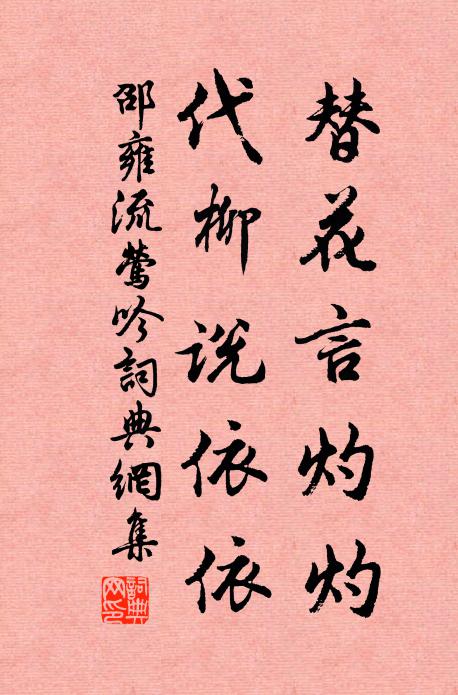 替花言灼灼
代柳说依依
邵雍流莺吟詞典網集
詞典
网印